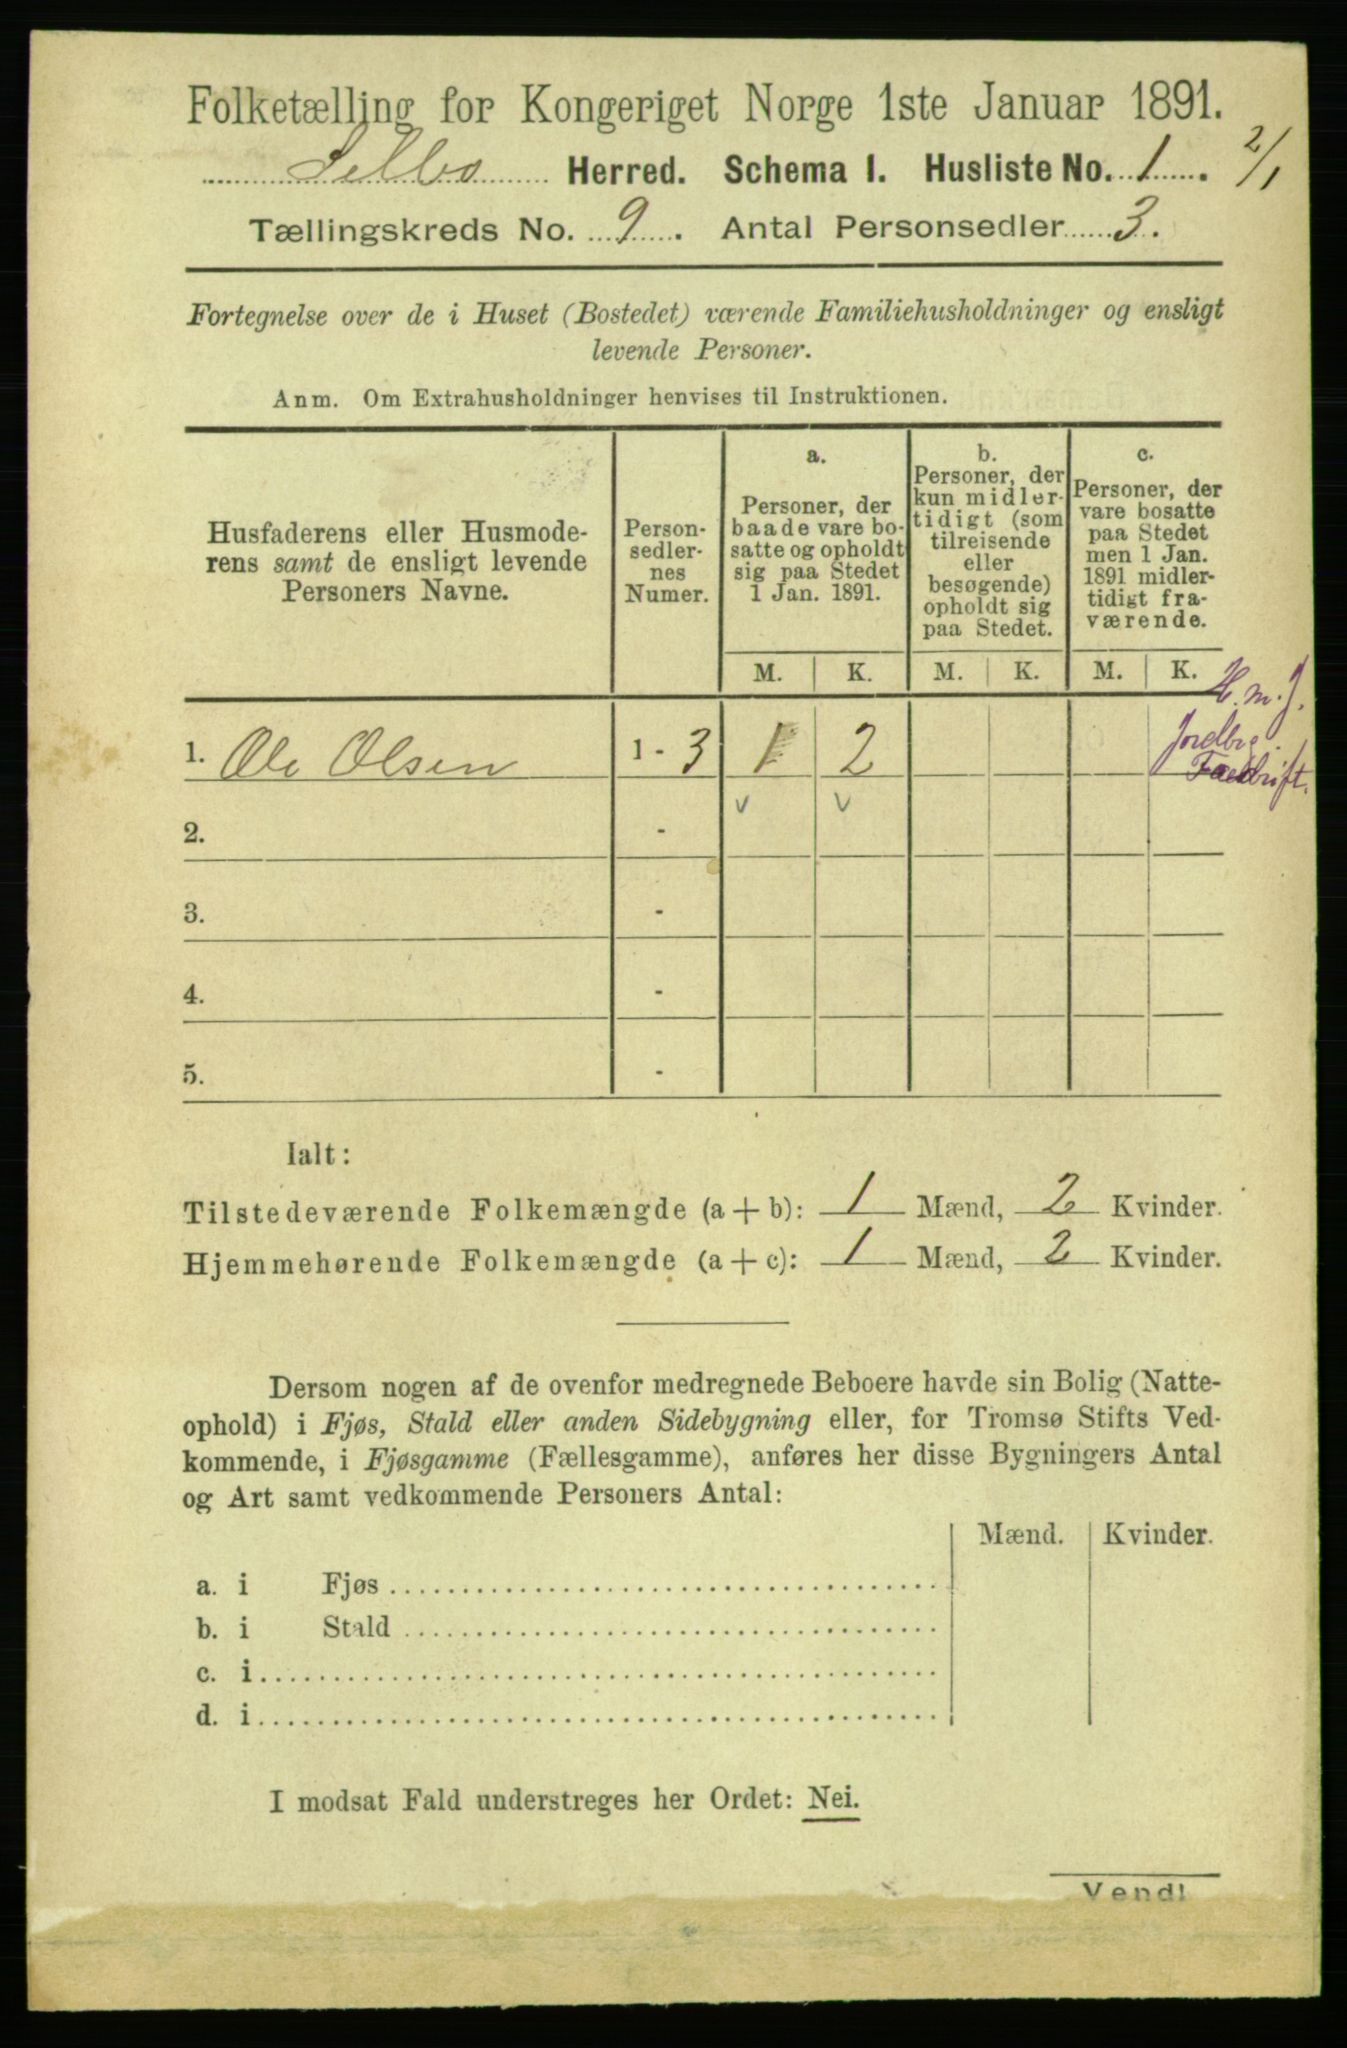 Folketælling for Kongeriget Norge 1ste Januar 1891.
Selbo Herred. Schema I. Husliste No. 1. 2/1
Tællingskreds No. 9. Antal Personsedler 3.
Fortegnelse over de i Huset (Bostedet) værende Familiehusholdninger og ensligt
levende Personer.
Anm. Om Extrahusholdninger henvises til Instruktionen.
Husfaderens eller Husmode-
rens samt de ensligt levende
Personers Navne.
Person-
sedler-
nes
Numer.
a.
Personer, der
baade vare bo-
satte og opholdt
sig paa Stedet
1 Jan. 1891.
b.
Personer, der
kun midler-
tidigt (som
tilreisende
eller
besøgende)
opholdt sig
paa Stedet.
c.
Personer, der
vare bosatte
paa Stedet
men 1 Jan.
1891 midler-
tidigt fra-
værende.
M. K. M. K. M. K.
H. m. J.
Jordbr.
Fædrift.
1. Ole Olsen 1 - 3 1 2
v v
2. -
3. -
4. -
5. -
Ialt:
Tilstedeværende Folkemængde (a + b): 1 Mænd, 2 Kvinder.
Hjemmehørende Folkemængde (a + c): 1 Mænd, 2 Kvinder.
Dersom nogen af de ovenfor medregnede Beboere havde sin Bolig (Natte-
ophold) i Fjøs, Stald eller anden Sidebygning eller, for Tromsø Stifts Ved-
kommende, i Fjøsgamme (Fællesgamme), anføres her disse Bygningers Antal
og Art samt vedkommende Personers Antal:
Mænd. Kvinder.
a. i Fjøs
b. i Stald
c. i
d. i
I modsat Fald understreges her Ordet: Nei.
Vend!